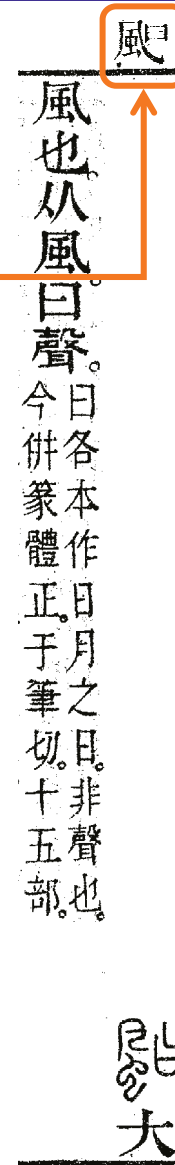 䫻
䫻大
風也。从風曰聲。
曰各本作日月之日。非聲也。
今併篆體正。于筆切。十五部。